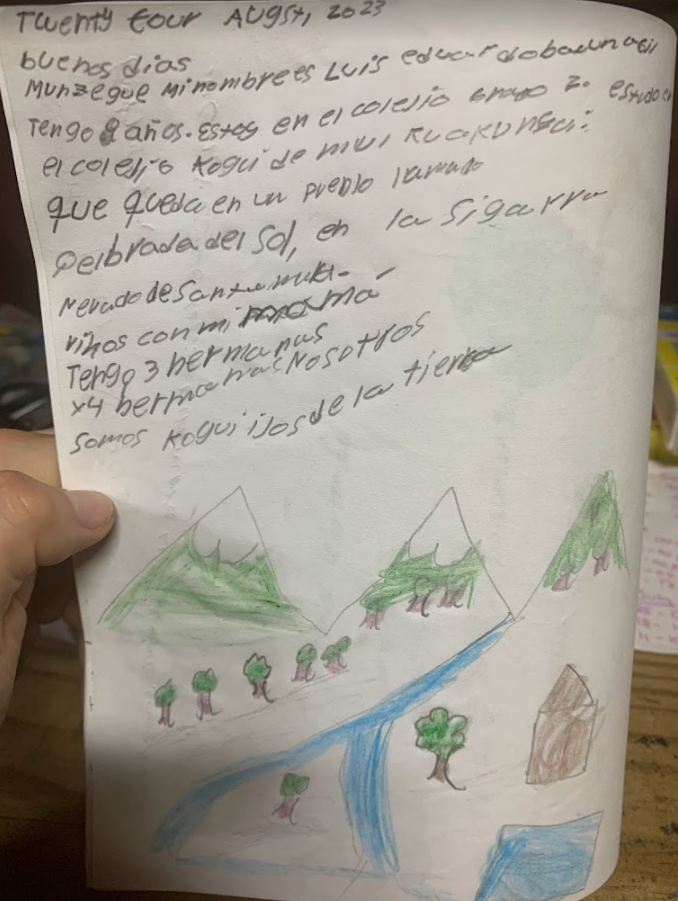 Twenty four Augst, 2023
buenos dias
Munzegue Mi nombre es Luis eduardo
Tengo 8 años. Estoy en el colejio Grado 2º estudo en
el colejio kogui de
que queda en un pueblo llamado
Qelbrada del Sol, en la Sigarra
Nevado de Santa
con mi mamá
Tengo 3 hermanas
x4 hermanas Nosotros
somos kogui ijos de la tierra